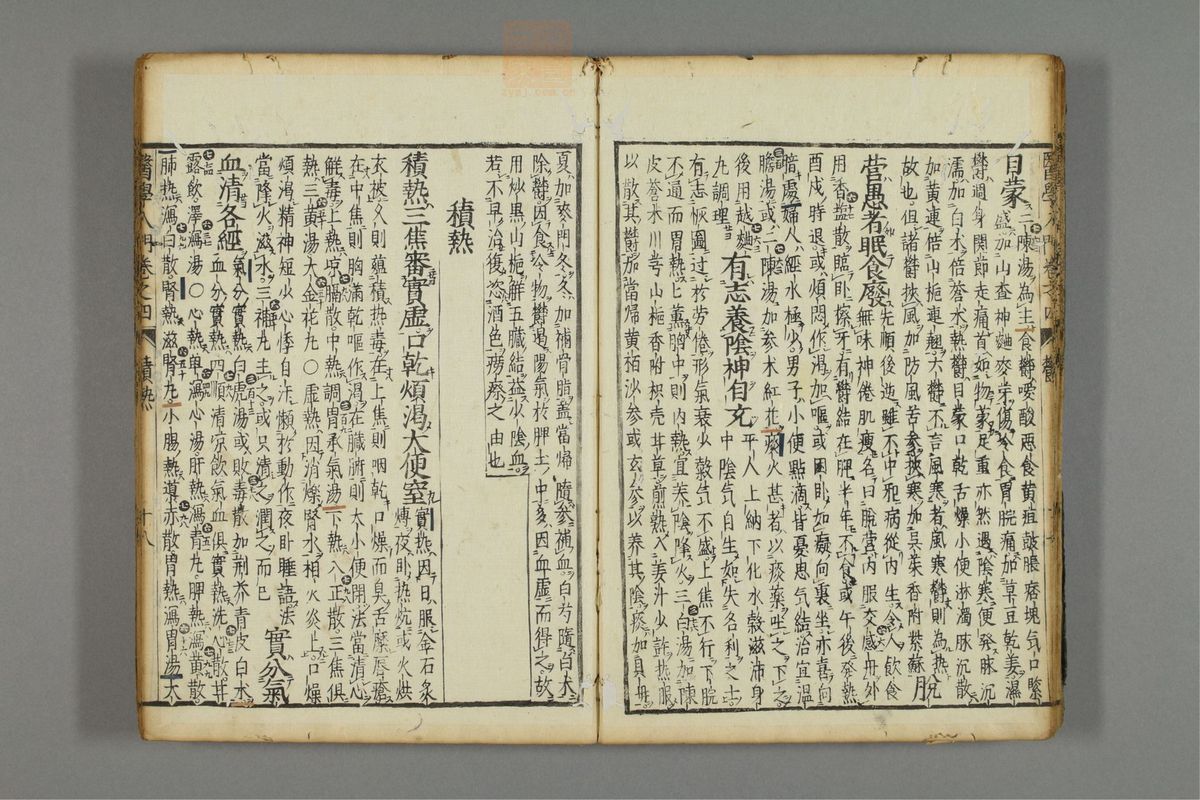 目蒙二陳湯為主食鬱噯酸惡食黃疸鼓脹痞塊氣口緊
盛加山查神麯麥芽傷冷食胃脘痛加草豆乾姜濕
鬱週身関節走痛首如物蒙足重亦然遇陰寒便発脉沉
濡加白朮倍苓朮熱鬱目蒙口乾舌燥小便淋濁脉沉散
加黃連倍山梔連翹六鬱不言風寒者風寒鬱則為熱
故也但諸鬱挾風加防風苦參挾寒加吳茱香附紫蘇脫
營愚者眠食廢先順後逆雖不中邪病從內生令人飲食
無味神倦肌瘦名曰脫營內服交感丹外
用香鹽散臨臥擦牙有鬱結在脾半年不食或午後発熱
酉戌時退或煩悶作渴加嘔或困臥如癡向裏坐亦喜向
暗處婦人經水極少男子小便點滴皆憂思氣結治宜溫
膽湯或二陳湯加參朮紅花痰火甚者以痰藥吐之下之
後用越麯丸調理有志養陰神自充平人上納下化水穀滋沛身
中陰氣自生如失名利之士
有志恢圖過於勞倦形氣衰少穀氣不盛上焦不行下脘
不通而胃熱上薰胸中則內熱宜養陰降火三白湯加陳
皮苓朮川芎山梔香附枳壳甘草煎熱入姜汁少許熱服
以散其鬱加當歸黃栢沙參或玄參以養其陰痰加貝母
夏加麥門冬冬加補骨脂蓋當歸隨參補血白芍隨白朮
除鬱因食冷物鬱遏陽氣於脾土中多因血虛而得之故
用炒黑山梔解五臟結益少陰血
若不早治復恣酒色癆瘵之由也
積熱
積熱三焦審實虛口乾煩渴大便窒實熱因日服金石炙
煿夜臥熱炕或火烘
衣被久則蘊積熱毒在上焦則咽乾口燥而臭舌糜唇瘡
在中焦則胸滿乾嘔作渴在臟腑則大小便閉法當清心
解毒上熱凉膈散中熱調胃承氣湯下熱八正散三焦俱
熱三黃湯大金花丸○虛熱因消爍腎水相火炎上口燥
煩渴精神短少心悸自汗懶於動作夜臥睡語法
當降火滋水三補丸主之或只清之潤之而已實分氣
血清各經氣分實熱白虎湯或敗毒散加荊芥青皮白朮
血分實熱四順清凉飲氣血俱實熱洗心散甘
露飲澤瀉湯○心熱單瀉心湯肝熱瀉青丸脾熱瀉黃散
肺熱瀉白散腎熱滋腎丸小腸熱導赤散胃熱瀉胃湯大
醫學入門卷之四
積熱
十八